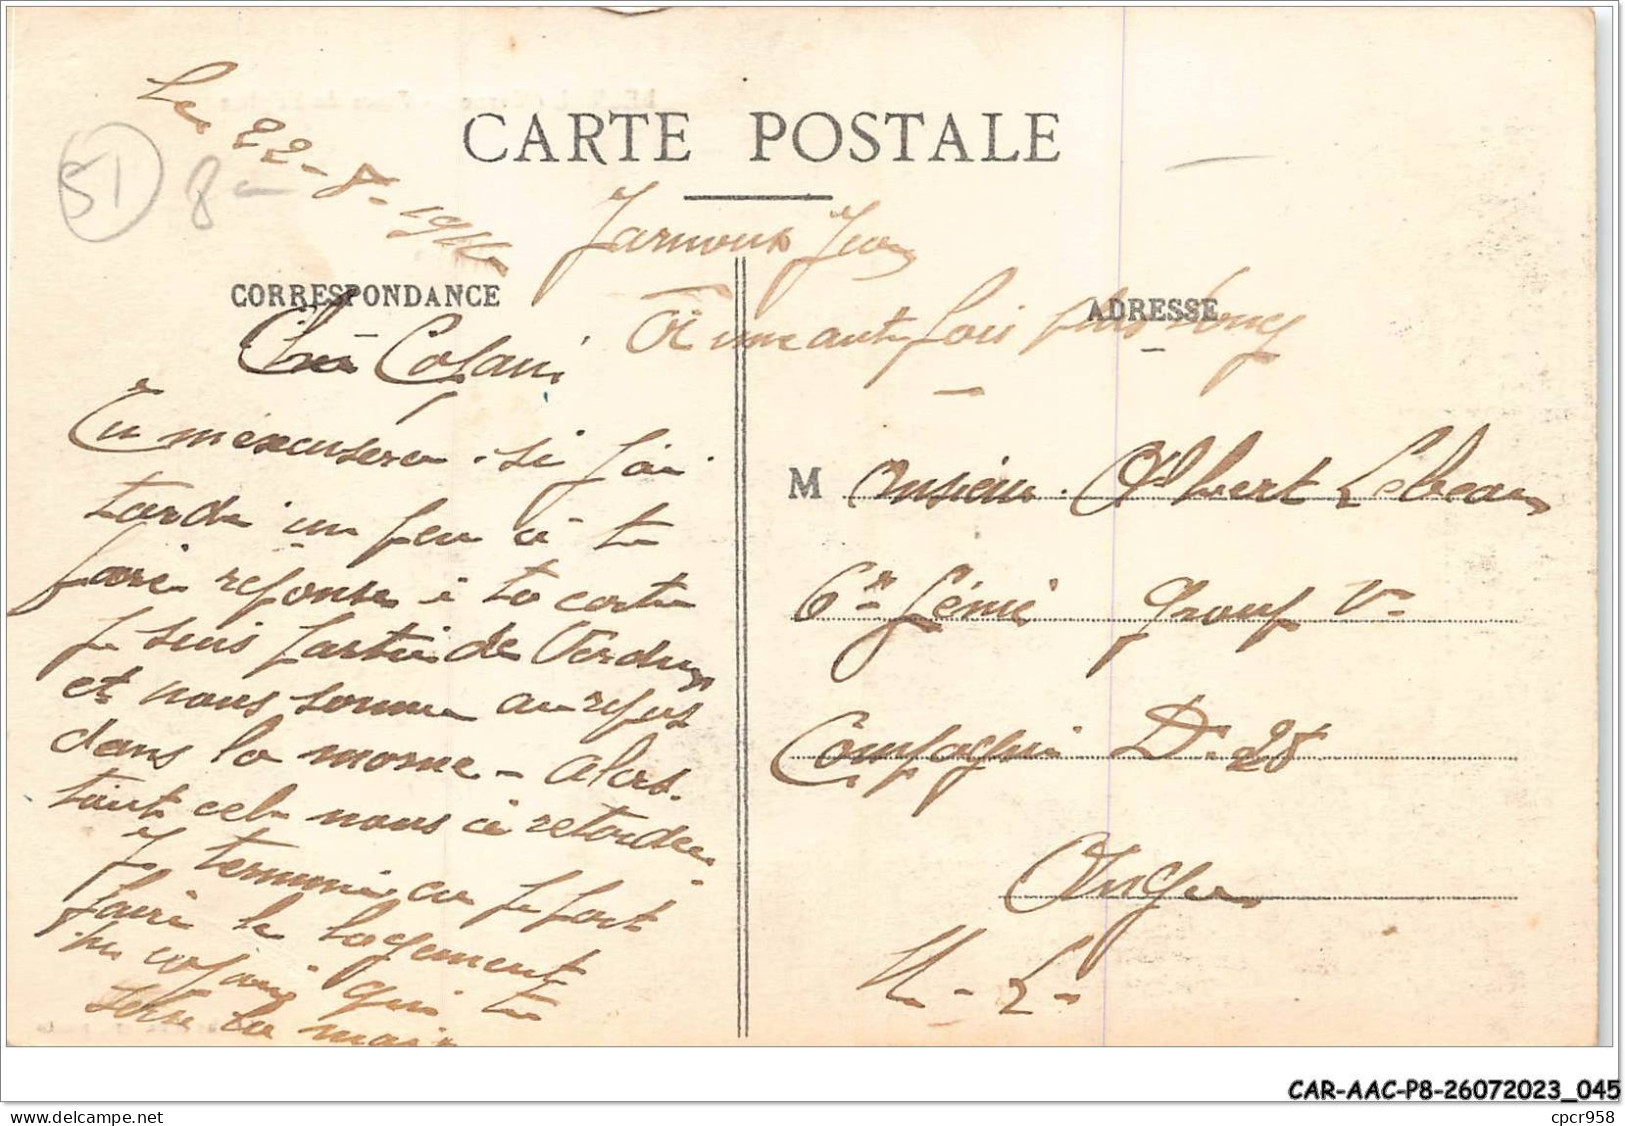 Le 22-8-1916
51
8-
CARTE POSTALE
Jarnoux Jean
CORRESPONDANCE
ADRESSE
Cher Copain
A une autre fois plus long
Tu m'excusera si j'ai
tardé un peu à te
faire réponse à ta carte
je suis partie de Verdun
et nous somme au repos
dans la marne - alors
tout cela nous à retarder
Je termine car je part
faire le logement
un copain qui te
serre la main
M onsieur Albert Lebeau
6e Génie Group V
Compagnie D. 28
Angers
M - L
CAR-AAC-P8-26072023_045
© www.delcampe.net
cpcr958